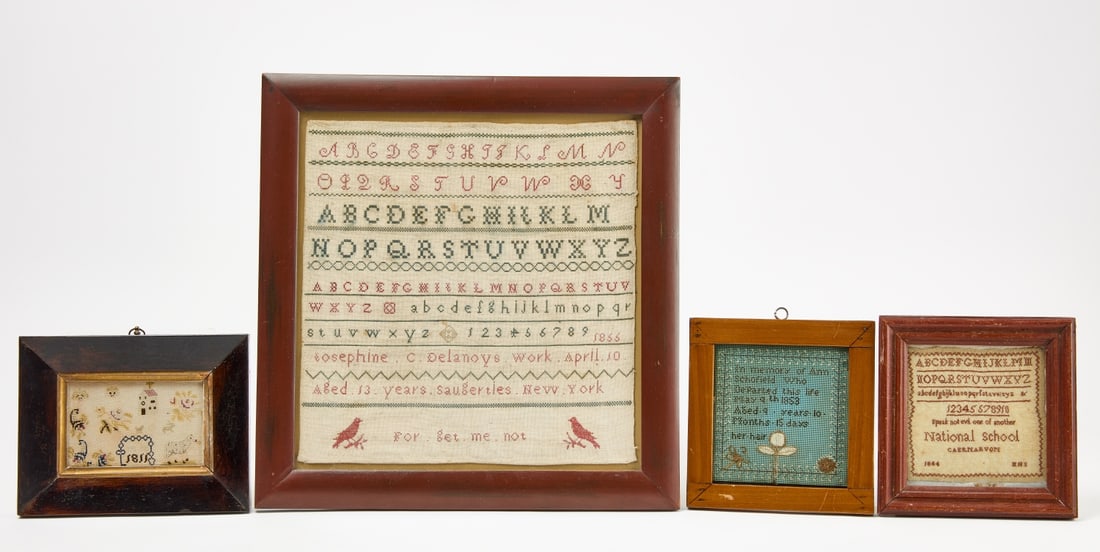 1811
A B C D E F G H I J K L M N
O P Q R S T U V W X Y
A B C D E F G H I J K L M
N O P Q R S T U V W X Y Z
A B C D E F G H I J K L M N O P Q R S T U V
W X Y Z a b c d e f g h i j k l m n o p q r
s t u v w x y z 1 2 3 4 5 6 7 8 9 1855
Josephine . C . Delanoys . Work . April . 10
Aged . 13 . years . Saugerties . New . York
For . get . me . not
In memory of Ann
Schofield Who
Departed this life
May 9th 1853
Aged 9 years 10
Months 15 days
her hair
ABCDEFGHIJKLM
NOPQRSTUVWXYZ
abcdefghijklmnopqrstuvwxyz &
12345678910
Speak not evil one of another
National School
CAERNARVON
1844